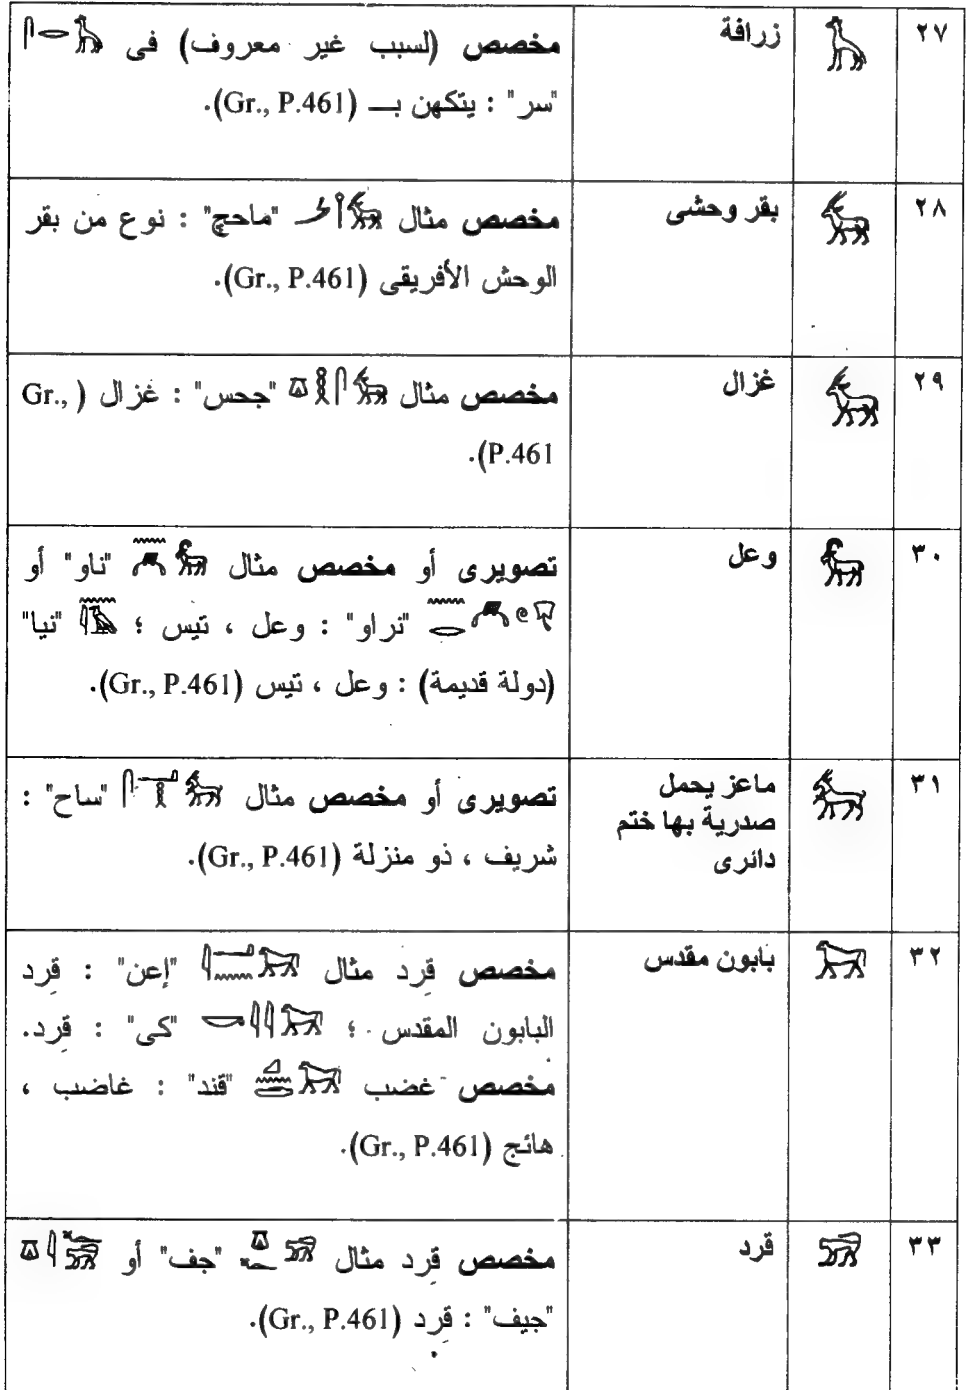 ٢٧ زرافة مخصص (لسبب غير معروف) فى 𓋴𓂋𓃱
"سر" : يتكهن بـ (Gr., P.461).
٢٨ بقر وحشى مخصص مثال "ماحچ" : نوع من بقر
الوحش الأفريقى (Gr., P.461).
٢٩ غزال مخصص مثال "جحس" : غزال (Gr.,
P.461).
٣٠ وعل تصويرى أو مخصص مثال "ناو" أو
"نراو" : وعل ، تيس ؛ "نيا"
(دولة قديمة) : وعل ، تيس (Gr., P.461).
٣١ ماعز يحمل
صدرية بها ختم
دائرى
تصويرى أو مخصص مثال "ساح" :
شريف ، ذو منزلة (Gr., P.461).
٣٢ بابون مقدس مخصص قِرد مثال "إعن" : قِرد
البابون المقدس ؛ "كى" : قِرد.
مخصص غضب "قند" : غاضب ،
هائج (Gr., P.461).
٣٣ قرد مخصص قِرد مثال "جف" أو
"جيف" : قِرد (Gr., P.461).